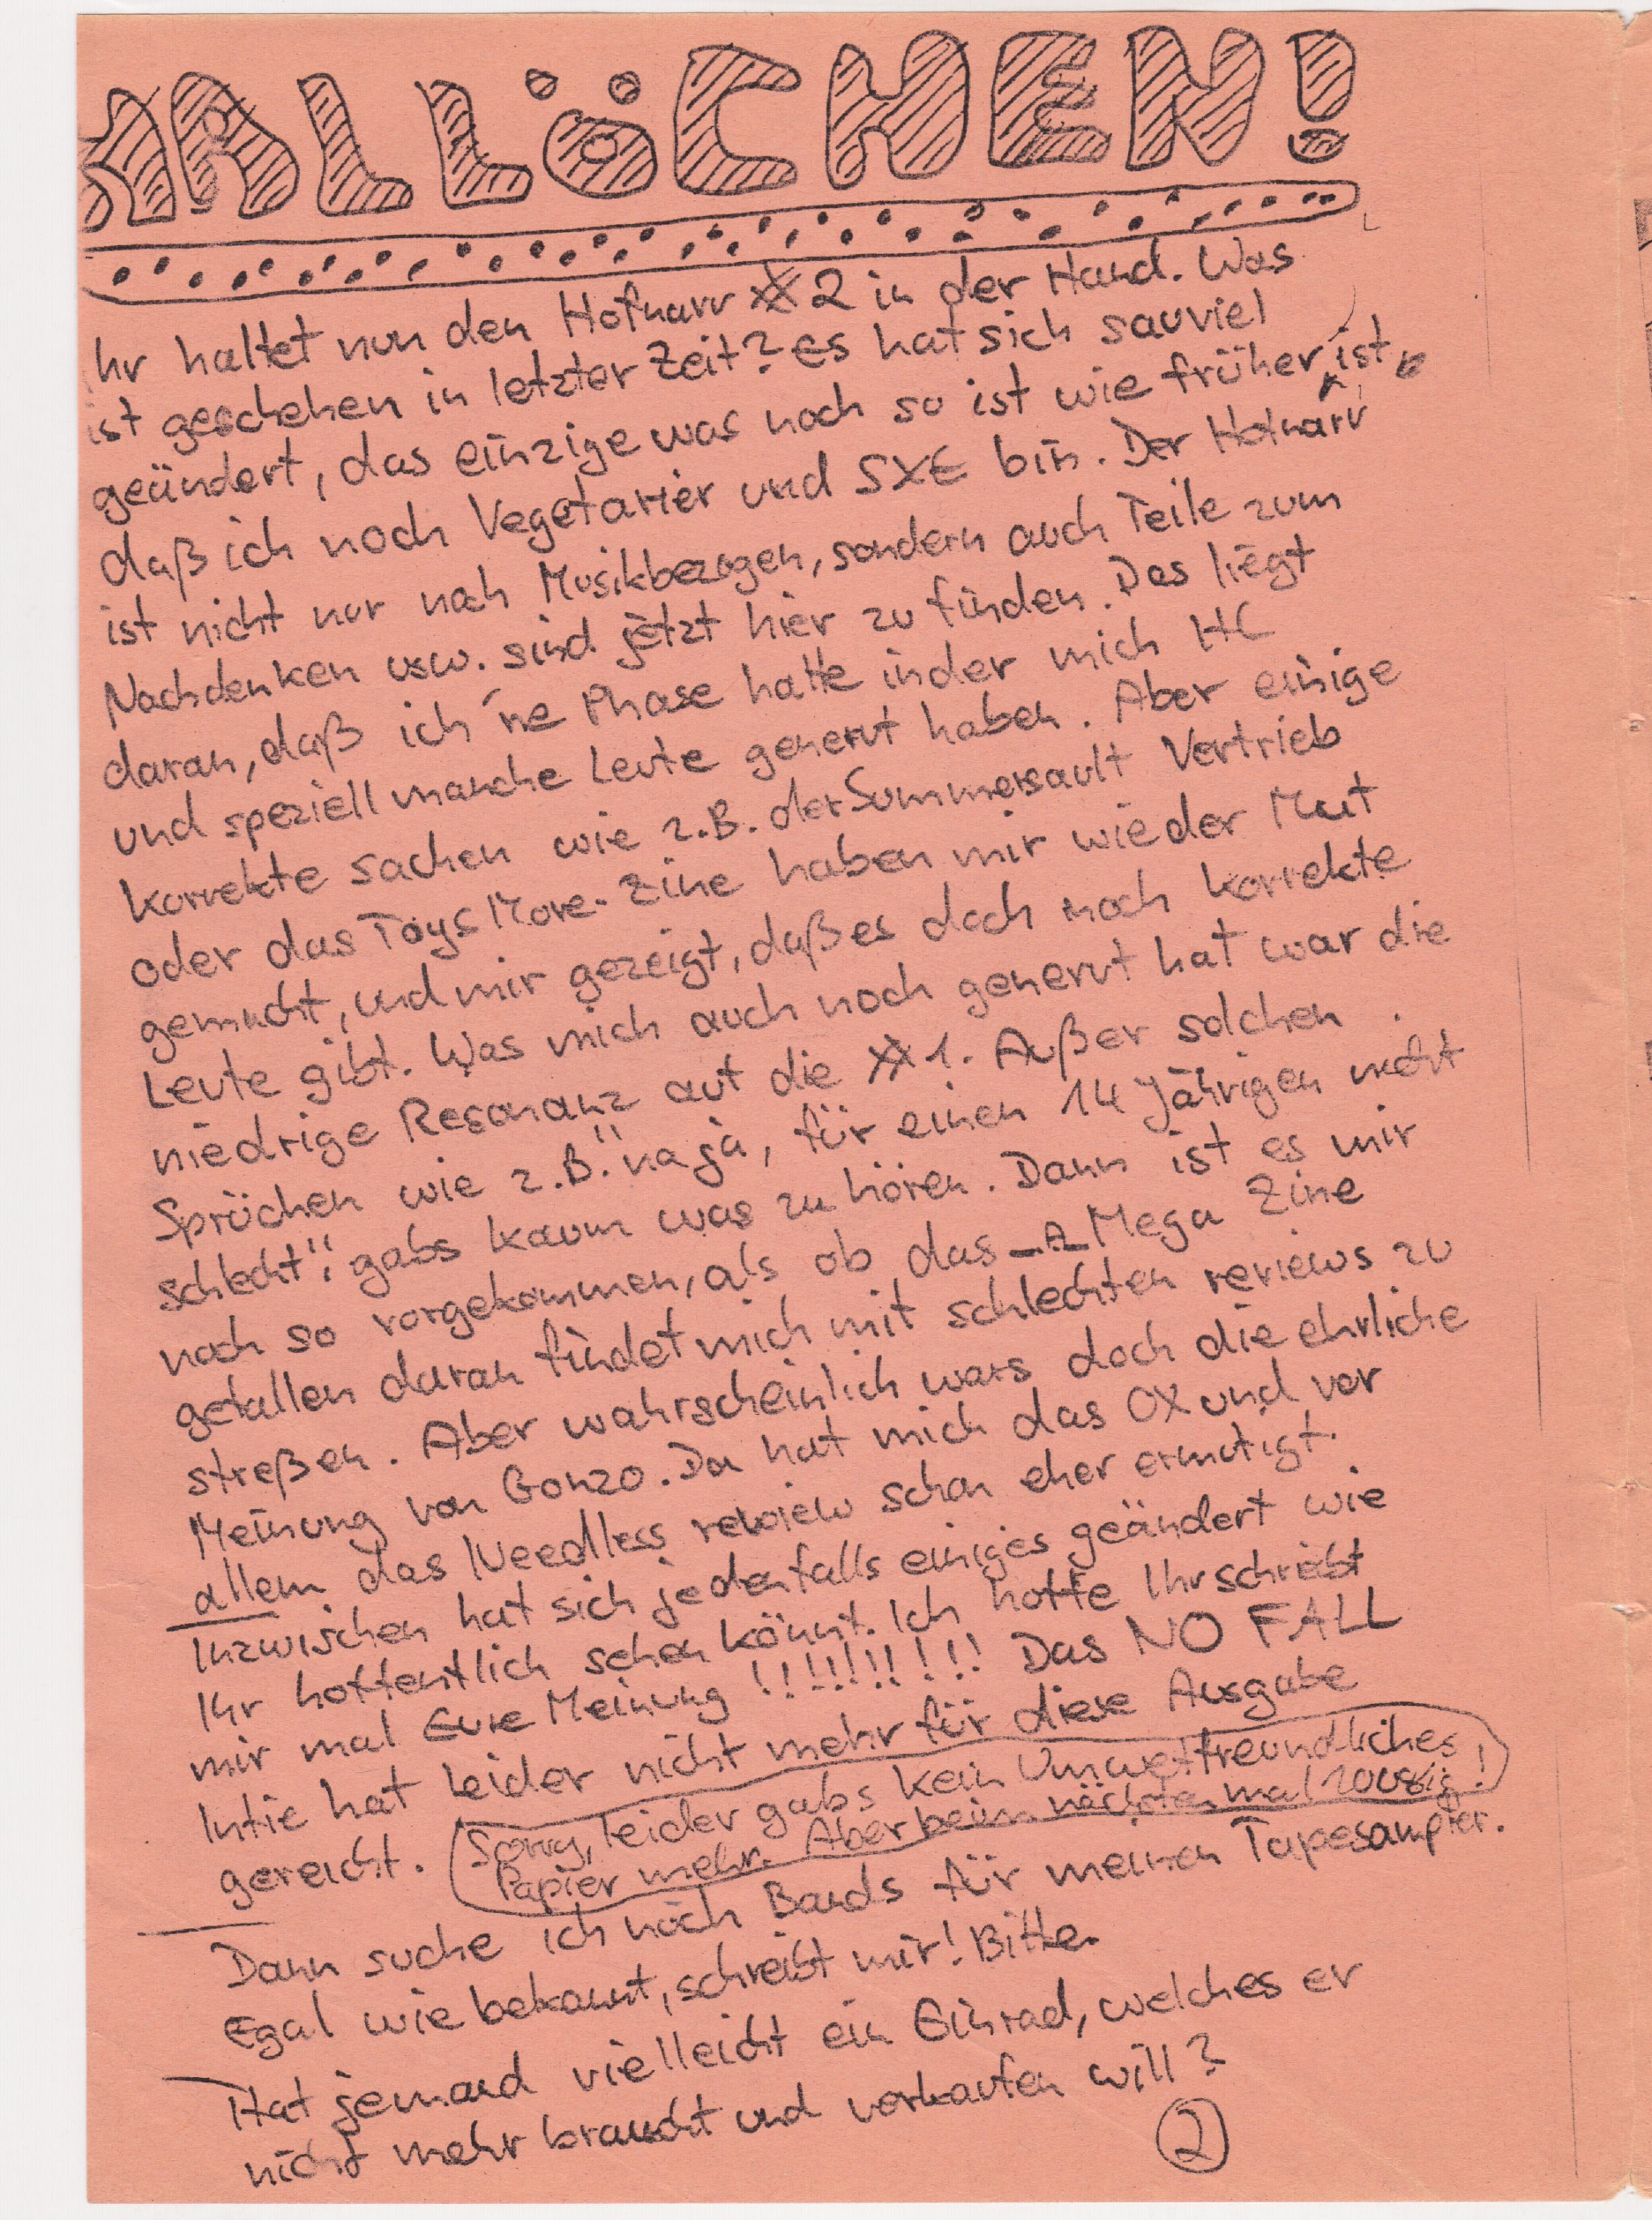 HALLÖCHEN!
Ihr haltet nun den Hofnarr # 2 in der Hand. Was
ist geschehen in letzter Zeit? Es hat sich sauviel
geändert, das einzige was noch so ist wie früher, ist,
daß ich noch Vegetarier und SXE bin. Der Hofnarr
ist nicht nur noch Musikbezogen, sondern auch Teile zum
Nachdenken usw. sind jetzt hier zu finden. Das liegt
daran, daß ich 'ne Phase hatte in der mich HC
und speziell manche Leute genervt haben. Aber einige
Korrekte sachen wie z.B. der Summersault Vertrieb
oder das Toys Move-Zine haben mir wieder Mut
gemacht, und mir gezeigt, daß es doch noch korrekte
Leute gibt. Was mich auch noch genervt hat war die
niedrige Resonanz auf die # 1. Außer solchen
Sprüchen wie z.B. "na ja, für einen 14 Jährigen nicht
schlecht", gabs kaum was zu hören. Dann ist es mir
noch so vorgekommen, als ob das A Mega Zine
gefallen daran findet mich mit schlechten reviews zu
streßen. Aber wahrscheinlich wars doch die ehrliche
Meinung von Gonzo. Da hat mich das OX und vor
allem das Needless review schon eher ermutigt.
Inzwischen hat sich jedenfalls einiges geändert wie
Ihr hoffentlich sehen könnt. Ich hoffe Ihr schreibt
mir mal Eure Meinung !!!!!!!!!! Das NO FALL
Intie hat leider nicht mehr für diese Ausgabe
gereicht. Sorry, leider gabs kein Umweltfreundliches
Papier mehr. Aber beim nächsten mal 100%ig!
Dann suche ich noch Bands für meinen Tapesampler.
Egal wie bekannt, schreibt mir! Bitte.
Hat jemand vielleicht ein Einrad, welches er
nicht mehr braucht und verkaufen will?
2